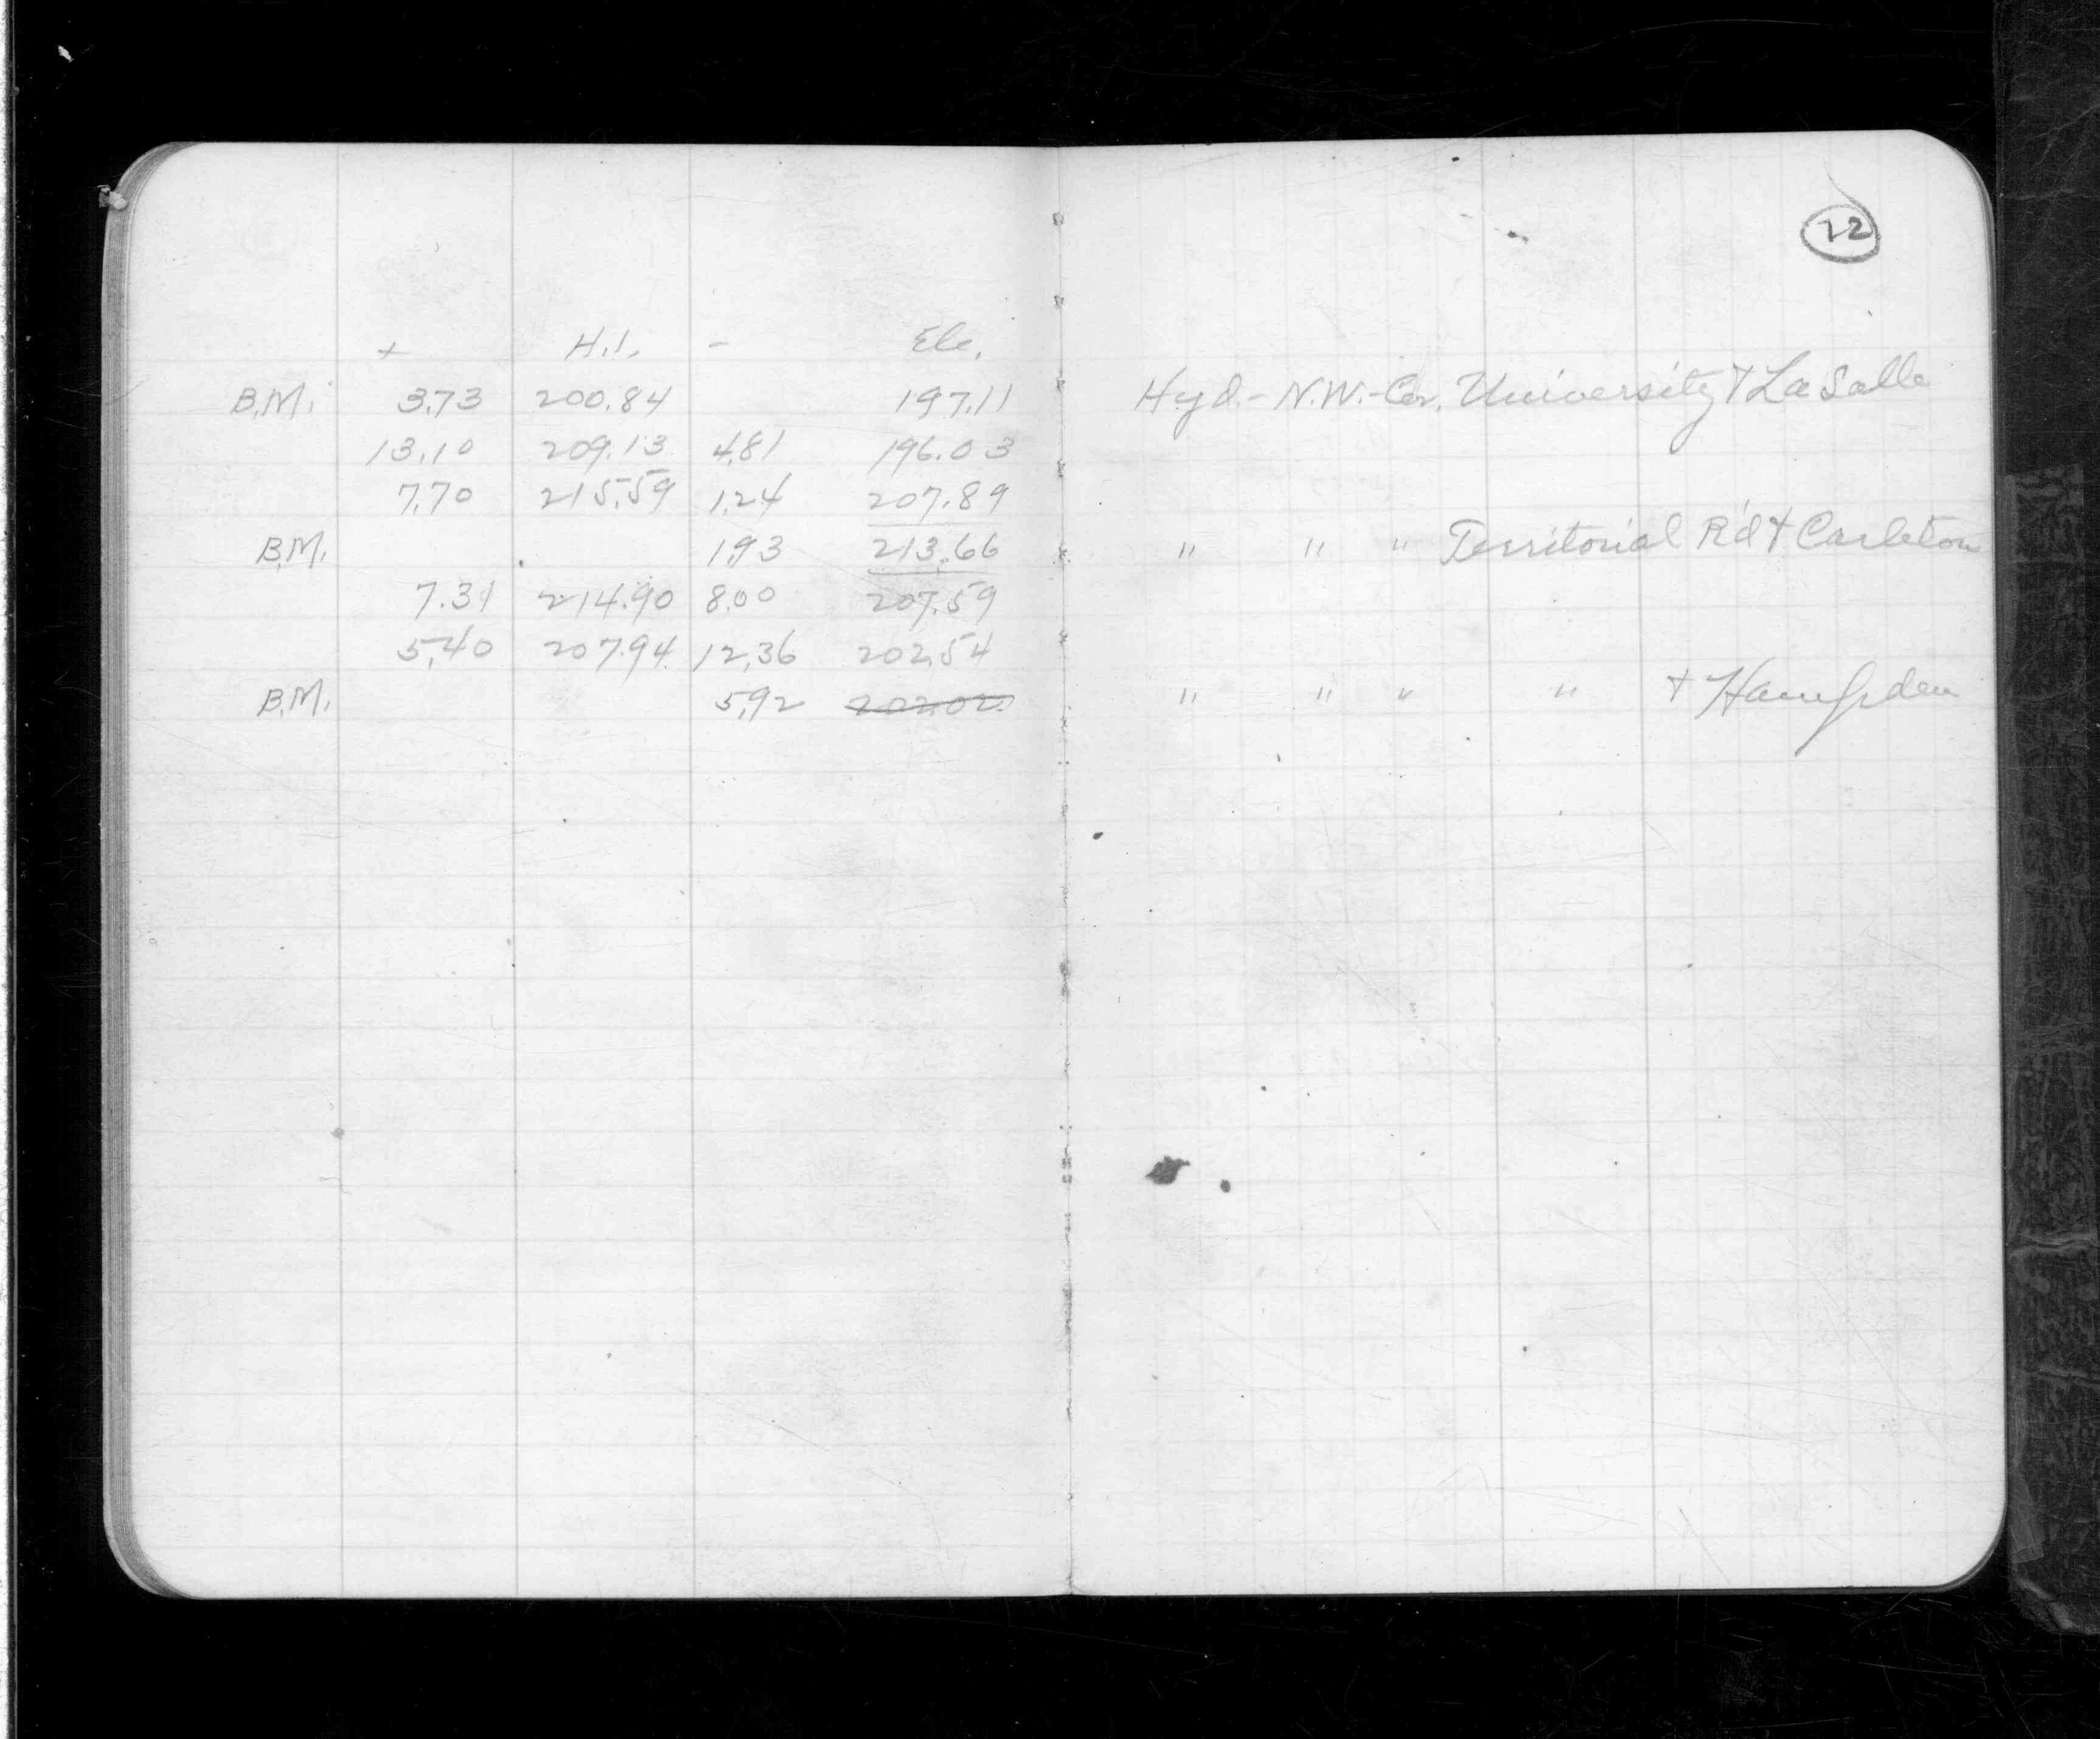 22
+ H.I. - Ele.
B.M. 3.73 200.84 197.11 Hyd.- N.W.- Cor. University & La Salle
13.10 209.13 4.81 196.03
7.70 215.59 1.24 207.89
B.M. 1.93 213.66 " " " Territorial R'd & Carleton
7.31 214.90 8.00 207.59
5.40 207.94 12.36 202.54
B.M. 5.92 202.02 " " " " & Hampden